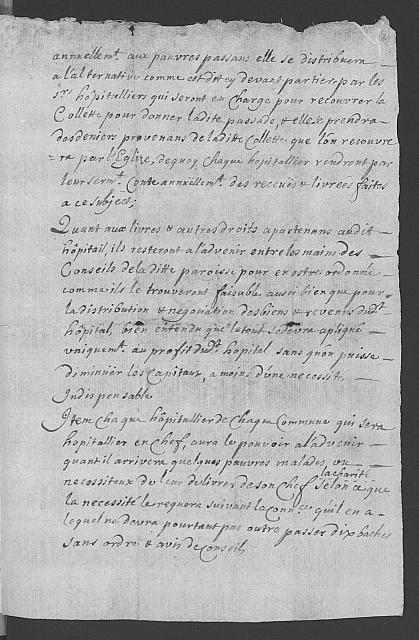 annuellemt. aux pauvres passans elle se distribuera
a l'alternative comme est dit cy devant partier par les
srs. hôpitalliers qui seront en charge pour recouvrer la
Collette pour donner la dite passade, & elle se prendra
des deniers provenans de la ditte Collette que l'on recouvre
=ra par l'Eglize, de quoy chaque hôpitallier rendront par
leur sermt. Conte annuellemt. des receües & livrées faites
a ce subject;
Quant aux livres & autres droits apartenans audit
hôpital, ils resteront a l'advenir entre les mains des
Conseils de la ditte paroisse pour en estre ordonné
comme ils le trouveront faisable aussi bien que pour
la distribution & negociation des biens & revenus dudt.
hôpital, bien entendu que le tout se devra apliqué
uniquemt. au profit dudt. hôpital sans qu'on puisse
diminüer les Capitaux, a moins d'une necessité
Indispensable
Item chaque hôpitallier de chaque Commune qui sera
hôpitallier en chef, aura le pouvoir a l'advenir
quant il arrivera quelques pauvres malades, ou
necessiteux de leur delivrer de son chef la charité selon ce que
la necessité le requera suivant la Connce. qu'il en a
lequel ne devra pourtant pas outre passer dix baches
sans ordre & avis de Conseils